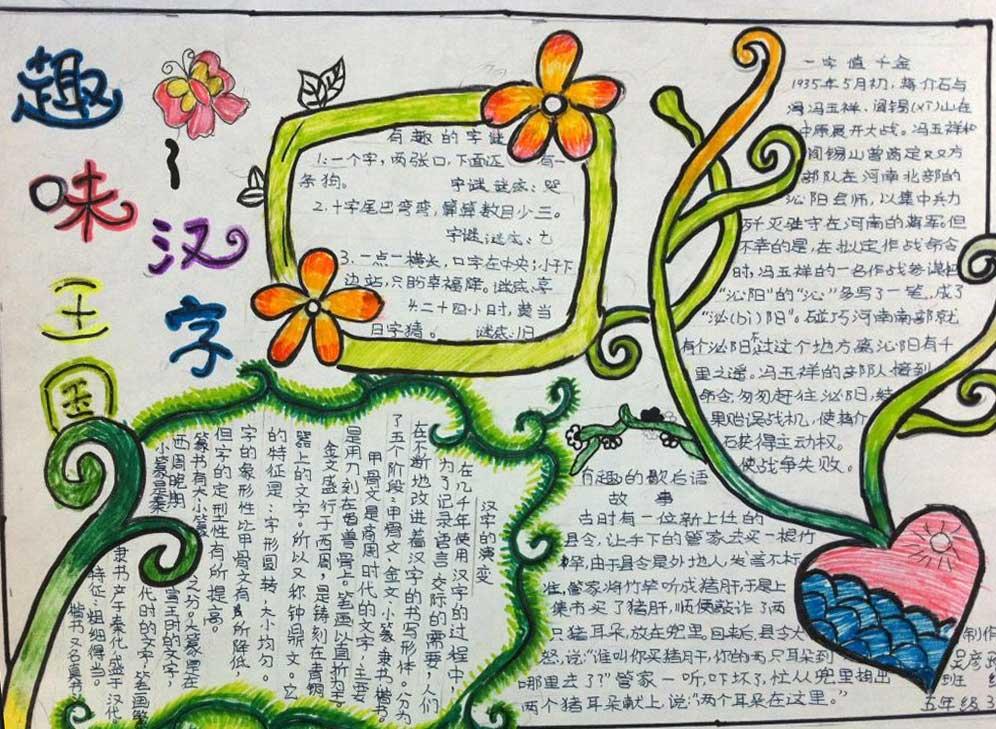 趣味汉字
王国
有趣的字谜
1.一个字,两张口,下面还 有一
条狗。 字谜 谜底:哭
2.十字尾巴弯弯,算算数目少三。
字谜谜底:七
3.一点一横长,口字在中央;小子下
边站,只盼幸福降。谜底:享
4.二十四小时,黄当
日字猜。 谜底:旧
一字值千金
1935年5月初,蒋介石与
冯玉祥、阎锡(xī)山在
中原展开大战。冯玉祥和
阎锡山曾商定双方
部队在河南北部的
沁阳会师,以集中兵力
歼灭驻守在河南的蒋军。但
不幸的是,在拟定作战命令
时,冯玉祥的一名作战参谋把
“沁阳”的“沁”多写了一笔,成了
“泌(bì)阳”。碰巧河南南部就
有个泌阳,过这个地方离沁阳有千
里之遥。冯玉祥的部队接到
命令,匆匆赶往泌阳,结
果贻误战机,使蒋介
石获得主动权。
使战争失败。
汉字的演变
在几千年使用汉字的过程中,
为了记录语言交际的需要,人们
在不断地改进着汉字的书写形体。分为
了五个阶段:甲骨文、金文、小篆、隶书、楷书。
甲骨文是商周时代的文字,主要
是用刀刻在兽骨上,笔画以直折居多。
金文盛行于西周,是铸刻在青铜
器上的文字。所以又称钟鼎文。它
的特征是:字形圆转,大小均匀。
字的象形性比甲骨文有所降低,
但字的定型性有所提高。
篆书有大小篆
之分。大篆是在
西周晚期
小篆是秦
代时的文字,笔画繁
隶书产于秦代,盛于汉代。
特征:粗细得当。
楷书又名真书
有趣的歇后语
故 事
当时有一位新上任的
县令,让手下的管家去买一根竹
竿,由于县令是外地人,发音不标
准,管家将竹竿听成猪肝,于是上
集市买了猪肝,顺便敲诈了两
只猪耳朵,放在兜里。回来后,县令大
怒,说:“谁叫你买猪肝,你的两只耳朵到
哪里去了?”管家一听,吓坏了,忙从兜里掏出
两个猪耳朵献上,说:“两个耳朵在这里。”
制作
班
五年级3